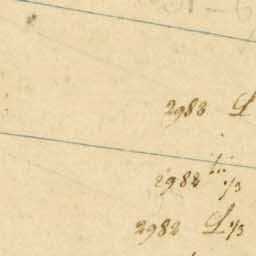 2983 L
2982 1/3
2982 L 1/3